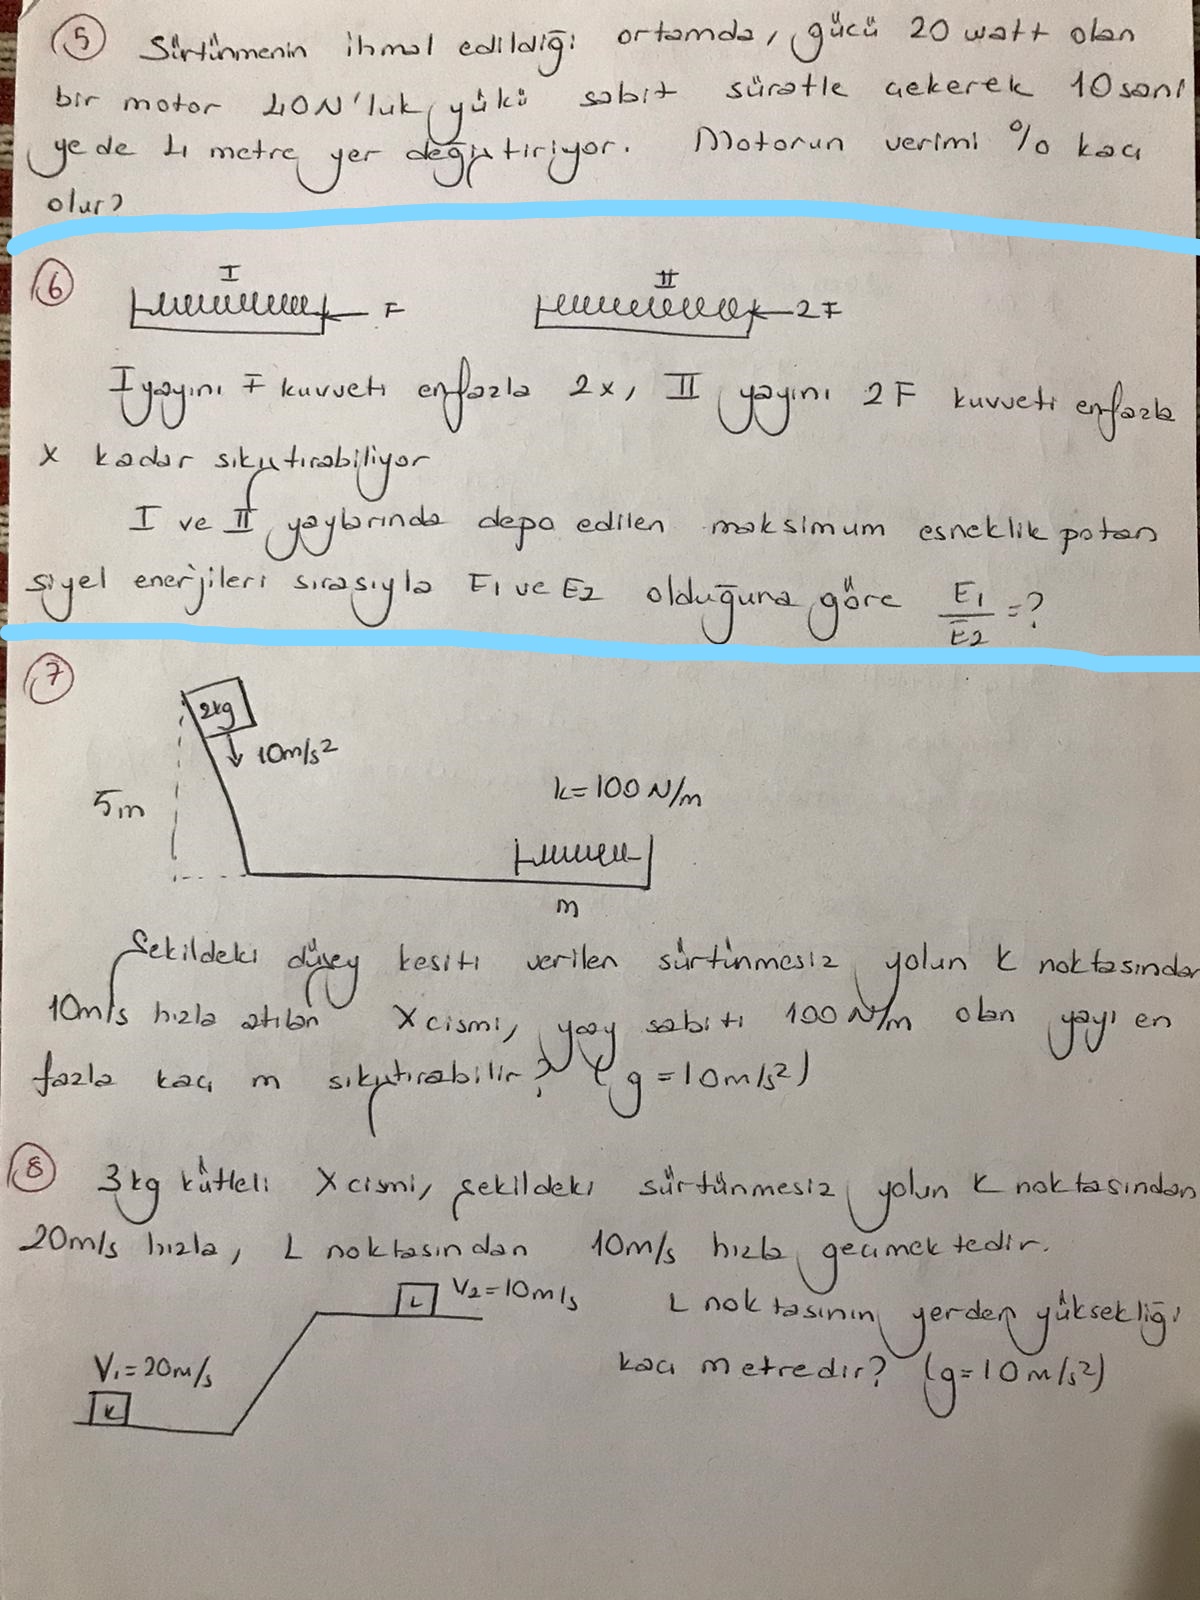 5 Sürtünmenin ihmal edildiği ortamda, gücü 20 watt olan
bir motor 40N'luk yükü sabit süratle çekerek 10 sani
yede 4 metre yer değiştiriyor. Motorun verimi % kaç
olur?
6 I F II 2F
I yayını F kuvveti enfazla 2x, II yayını 2F kuvveti enfazla
x kadar sıkıştırabiliyor
I ve II yaylarında depo edilen maksimum esneklik potan
siyel enerjileri sırasıyla E1 ve E2 olduğuna göre E1/E2 = ?
7
2kg
10m/s²
5m
k=100 N/m
m
Şekildeki düşey kesiti verilen sürtünmesiz yolun K noktasından
10m/s hızla atılan X cismi, yay sabiti 100 N/m olan yayı en
fazla kaç m sıkıştırabilir? (g=10m/s²)
8 3kg kütleli X cismi, şekildeki sürtünmesiz yolun K noktasından
20m/s hızla, L noktasından 10m/s hızla geçmektedir.
L V2=10m/s
L noktasının yerden yüksekliği
V1=20m/s
kaç metredir? (g=10m/s²)
K